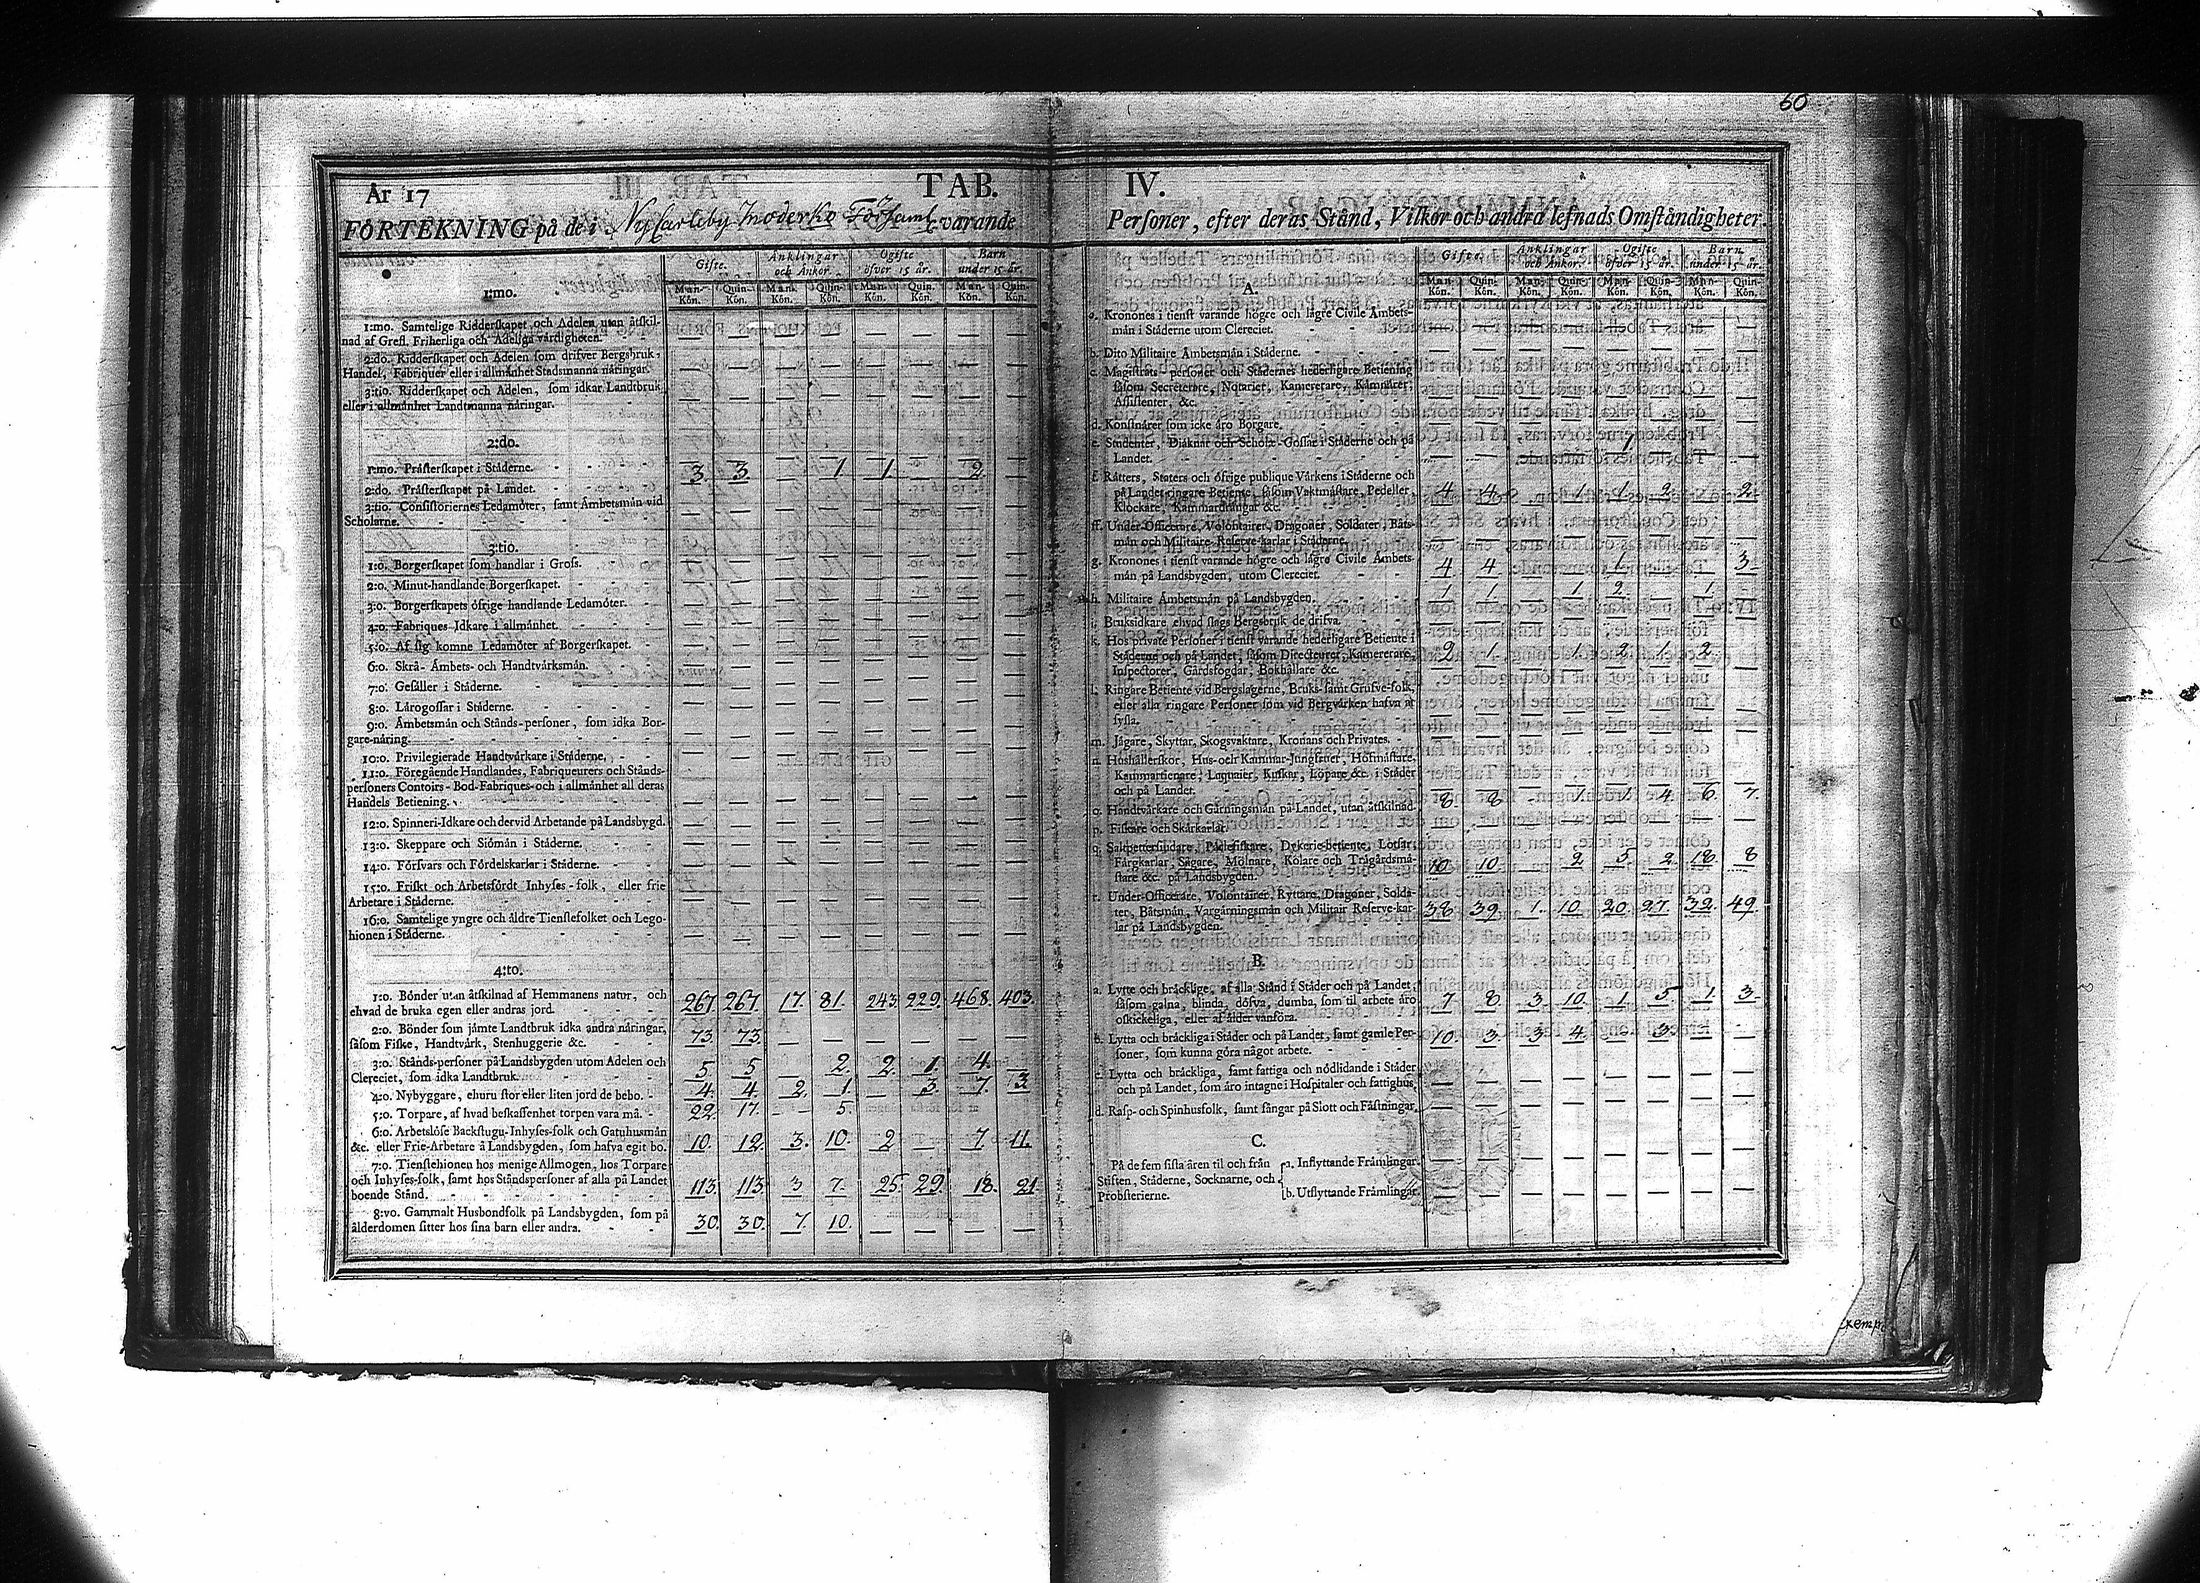 60
År 17 TAB.
FÖRTEKNING på de i NyCarleby Moderko Församl. varande
Gifte. Änklingar och Änkor. Ogifte öfver 15 år. Barn under 15 år.
Man-Kön. Quin-Kön. Man-Kön. Quin-Kön. Man-Kön. Quin-Kön. Man-Kön. Quin-Kön.
1:mo.
1:mo. Samtelige Ridderskapet och Adelen utan åtskil-
nad af Grefl. Friherliga och Adeliga värdigheten. — — — — — — — —
2:do. Ridderskapet och Adelen som drifver Bergsbruk,
Handel, Fabriquer eller i allmänhet Stadsmanna näringar. — — — — — — — —
3:tio. Ridderskapet och Adelen, som idkar Landtbruk
eller i allmänhet Landtmanna näringar. — — — — — — — —
2:do.
1:mo. Prästerskapet i Städerne. 3. 3. — 1 1. — 2. —
2:do. Prästerskapet på Landet. — — — — — — — —
3:tio. Consistoriernes Ledamöter, samt Ämbetsmän vid
Scholarne. — — — — — — — —
3:tio.
1:o. Borgerskapet som handlar i Gross. — — — — — — — —
2:o. Minut-handlande Borgerskapet. — — — — — — — —
3:o. Borgerskapets öfrige handlande Ledamöter. — — — — — — — —
4:o. Fabriques Idkare i allmänhet. — — — — — — — —
5:o. Af sig komne Ledamöter af Borgerskapet. — — — — — — — —
6:o. Skrå- Ämbets- och Handtvärksmän. — — — — — — — —
7:o. Gesäller i Städerne. — — — — — — — —
8:o. Lärogossar i Städerne. — — — — — — — —
9:o. Ämbetsmän och Stånds-personer, som idka Bor-
gare-näring. — — — — — — — —
10:o. Privilegierade Handtvärkare i Städerne. — — — — — — — —
11:o. Föregående Handlandes, Fabriqueurers och Stånds-
personers Contoirs- Bod-Fabriques- och i allmänhet all deras
Handels Betiening. — — — — — — — —
12:o. Spinneri-Idkare och dervid Arbetande på Landsbygd. — — — — — — — —
13:o. Skeppare och Siömän i Städerne. — — — — — — — —
14:o. Försvars och Fördelskarlar i Städerne. — — — — — — — —
15:o. Friskt och Arbetsfördt Inhyses-folk, eller frie
Arbetare i Städerne. — — — — — — — —
16:o. Samtelige yngre och äldre Tienstefolket och Lego-
hionen i Städerne. — — — — — — — —
4:to.
1:o. Bönder utan åtskilnad af Hemmanens natur, och
ehvad de bruka egen eller andras jord. 267. 267. 17. 81. 243. 229. 468. 403.
2:o. Bönder som jämte Landtbruk idka andra näringar,
såsom Fiske, Handtvärk, Stenhuggerie &c. 73. 73. — — — — — —
3:o. Stånds-personer på Landsbygden utom Adelen och
Clereciet, som idka Landtbruk. 5. 5. — 2. 2. 1. 4. —
4:o. Nybyggare, ehuru stor eller liten jord de bebo. 4. 4. 2. 1. — 3. 7. 3.
5:o. Torpare, af hvad beskaffenhet torpen vara må. 22. 17. — 5. — — — —
6:o. Arbetslöse Backstugu-Inhyses-folk och Gatuhusmän
&c. eller Frie-Arbetare å Landsbygden, som hafva egit bo. 10. 12. 3. 10. 2. — 7. 11.
7:o. Tienstehionen hos menige Allmogen, hos Torpare
och Inhyses-folk, samt hos Ståndspersoner af alla på Landet
boende Stånd. 113. 113. 3. 7. 25. 29. 18. 21.
8:vo. Gammalt Husbondfolk på Landsbygden, som på
ålderdomen sitter hos sina barn eller andra. 30. 30. 7. 10. — — — —
IV.
Personer, efter deras Stånd, Vilkor och andra lefnads Omständigheter.
Gifte. Änklingar och Änkor. Ogifte öfver 15 år. Barn under 15 år.
Man-Kön. Quin-Kön. Man-Kön. Quin-Kön. Man-Kön. Quin-Kön. Man-Kön. Quin-Kön.
A.
a. Kronones i tienst varande högre och lägre Civile Ämbets-
män i Städerne utom Clereciet. — — — — — — — —
b. Dito Militaire Ämbetsmän i Städerne. — — — — — — — —
c. Magistrats personer och Städernes hederligare Betiening
såsom Secreterare, Notarier, Kamererare, Kämnärer,
Assistenter, &c. — — — — — — — —
d. Konstnärer som icke äro Borgare. — — — — — — — —
e. Studenter, Diäknar och Schole-Gossar i Städerne och på
Landet. — — — — 1 — — —
f. Rätters, Staters och öfrige publique Värkens i Städerne och
på Landet ringare Betiente, såsom Vaktmästare, Pedeller,
Klockare, Kammardrängar &c. 4 4 — 1 1 2 — 2
ff. Under-Officerare, Volontairer, Dragoner, Soldater, Båts-
män och Militaire-Reserve-karlar i Städerne. — — — — — — — —
g. Kronones i tienst varande högre och lägre Civile Ämbets-
män på Landsbygden, utom Clereciet. 4 4 — — 1 — — 3
h. Militaire Ämbetsmän på Landsbygden. 1 1 — 1 2. — 1. —
i. Bruksidkare ehvad slags Bergsbruk de drifva. — — — — — — — —
k. Hos private Personer i tienst varande hederligare Betiente i
Städerne och på Landet, såsom Directeurer, Kamererare,
Inspectorer, Gårdsfogdar, Bokhållare &c. 2 1. — 1. 2 1. 2. —
l. Ringare Betiente vid Bergslagerne, Bruks- samt Grufve-folk,
eller alla ringare Personer som vid Bergvärken hafva at
syssla. — — — — — — — —
m. Jägare, Skyttar, Skogsvaktare, Kronans och Privates. — — — — — — — —
n. Hushållerskor, Hus- och Kammar-Jungfruer, Hofmästare,
Kammartienare, Laquaier, Kuskar, Löpare &c. i Städer
och på Landet. — — — — — — — —
o. Handtvärkare och Gärningsmän på Landet, utan åtskilnad. 8 8 — 1. 1 4 6. 7.
p. Fiskare och Skärkarlar. — — — — — — — —
q. Saltpettersiudare, Pärlefiskare, Dykerie-betiente, Lotsar,
Färgkarlar, Sågare, Mölnare, Kolare och Trägårdsmä-
stare &c. på Landsbygden. 10. 10. — 2 5. 2. 18 8
r. Under-Officerare, Volontairer, Ryttare, Dragoner, Solda-
ter, Båtsmän, Vargärningsmän och Militair Reserve-kar-
lar på Landsbygden. 38 39. 1. 10. 20. 27. 32. 49.
B.
a. Lytte och bräcklige, af alla Stånd i Städer och på Landet,
såsom galna, blinda, döfva, dumba, som til arbete äro
oskickeliga, eller af ålder vanföra. 7 8 3. 10. 1 5. 1. 3.
b. Lytta och bräckliga i Städer och på Landet, samt gamle Per-
soner, som kunna göra något arbete. 10. 3. 3. 4. — 3. — —
c. Lytta och bräckliga, samt fattiga och nödlidande i Städer
och på Landet, som äro intagne i Hospitaler och fattighus. — — — — — — — —
d. Rasp- och Spinhusfolk, samt fångar på Slott och Fästningar. — — — — — — — —
C.
På de fem sista åren til och från
Stiften, Städerne, Socknarne, och
Probsterierne.
a. Inflyttande Främlingar. — — — — — — — —
b. Utflyttande Främlingar. — — — — — — — —